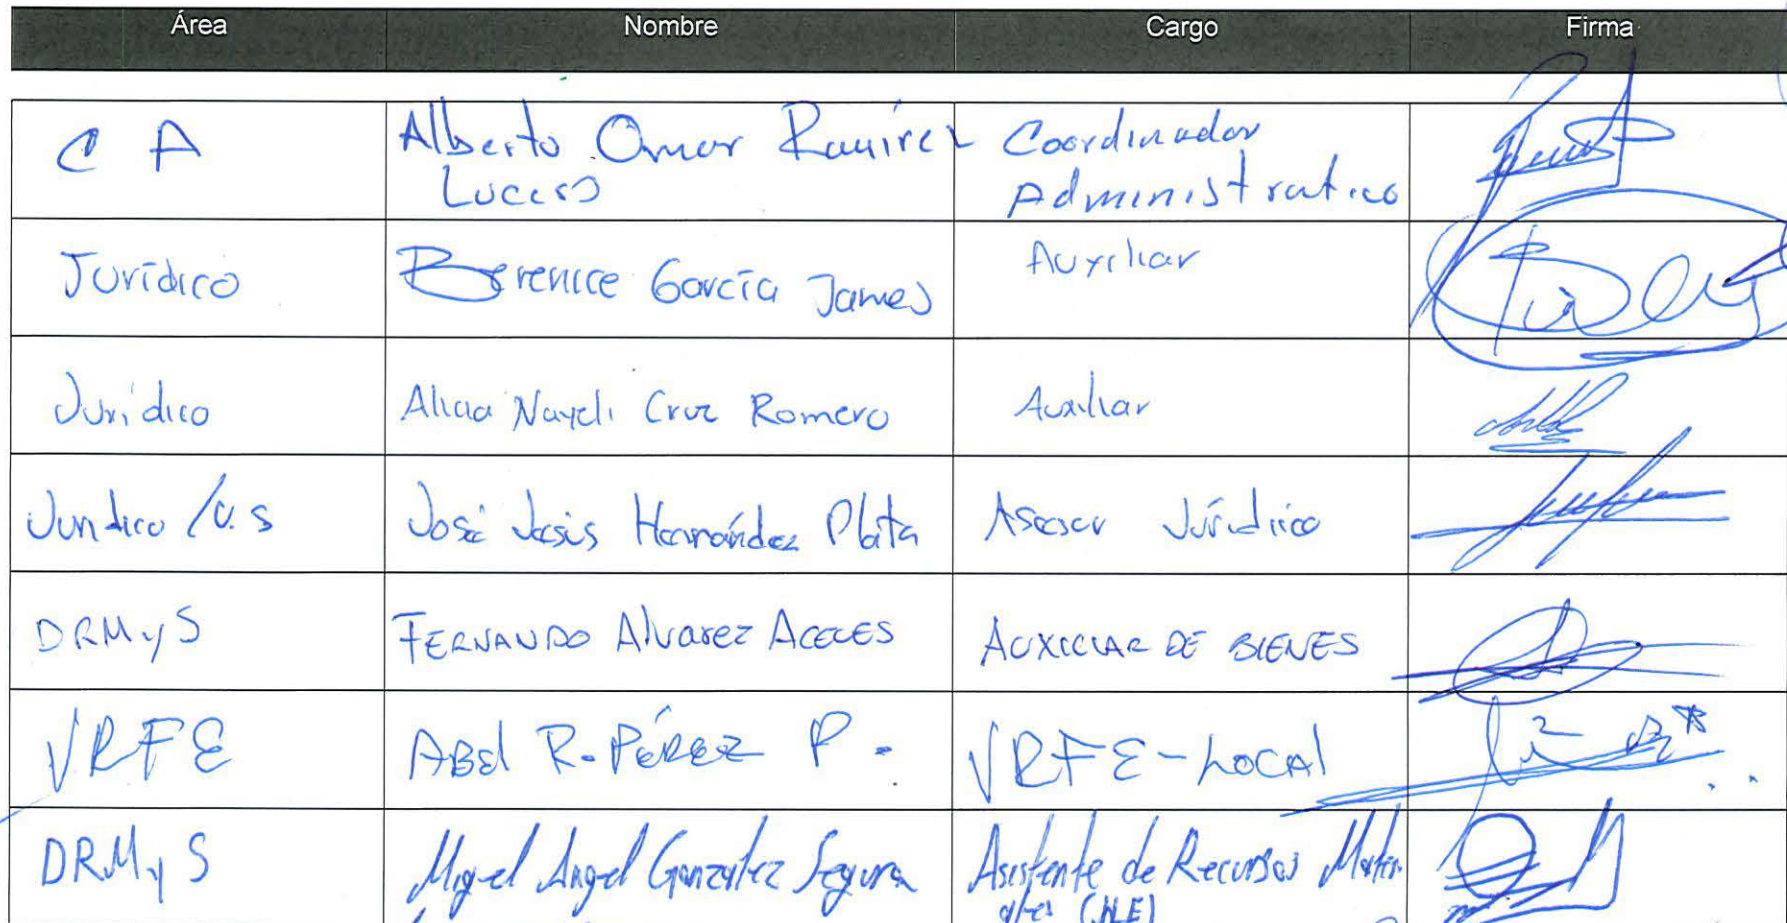 Área Nombre Cargo Firma
C A Alberto Omar Ramírez Coordinador
Lucero Administrativo
Jurídico Berenice García James Auxiliar
Jurídico Alicia Nayeli Cruz Romero Auxiliar
Jurídico /V.S José Jesús Hernández Plata Asesor Jurídico
DRMyS FERNANDO Alvarez ACELES AUXILIAR DE BIENES
VRFE ABEl R. PÉREZ P. VRFE-LOCAl
DRMyS Miguel Angel González Segura Asistente de Recursos Materi
ales (JLE)